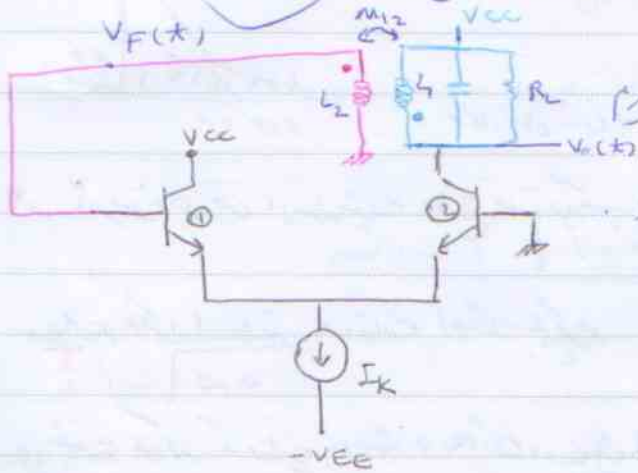 VF(t)
M12
VCC
L2
L1
R2
Vo(t)
VCC
①
②
IK
-VEE